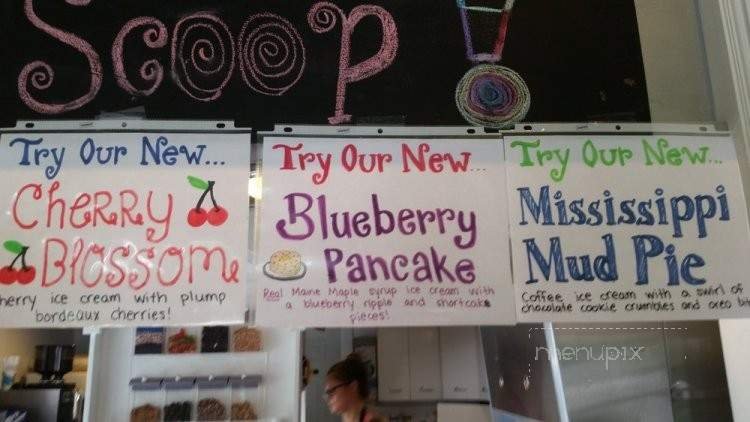 Scoop
Try Our New...
Cherry
Blossom
herry ice cream with plump
bordeaux cherries!
Try Our New...
Blueberry
Pancake
Real Maine Maple syrup ice cream with
a blueberry ripple and shortcake
pieces!
Try Our New...
Mississippi
Mud Pie
Coffee ice cream with a swirl of
chocolate cookie crumbles and oreo bi
menupix